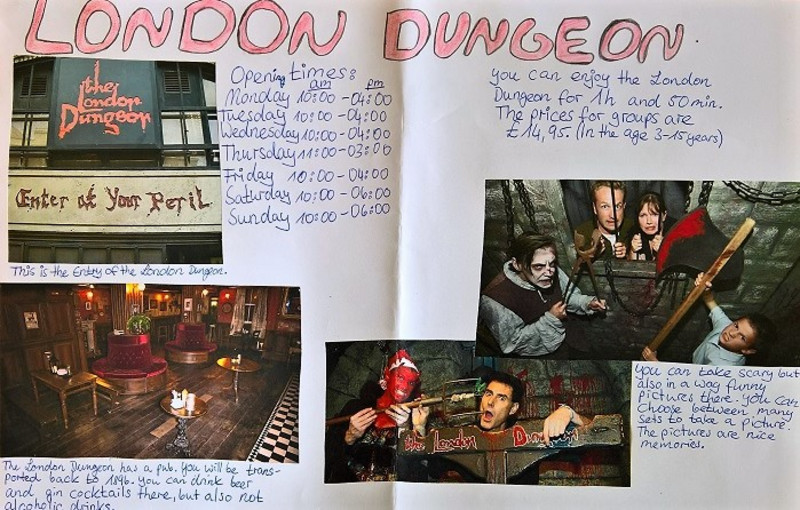 LONDON DUNGEON.
the
London
Dungeon
Enter at Your Peril
This is the Entry of the London Dungeon.
Opening times:
am pm
Monday 10:00 - 04:00
Tuesday 10:00 - 04:00
Wednesday 10:00 - 04:00
Thursday 11:00 - 03:00
Friday 10:00 - 04:00
Saturday 10:00 - 06:00
Sunday 10:00 - 06:00
you can enjoy the London
Dungeon for 1h and 50 min.
The prices for groups are
£14,95. (In the age 3-15 years)
The London Dungeon has a pub. You will be trans-
ported back to 1896. you can drink beer
and gin cocktails there, but also not
alcoholic drinks.
the London Dungeon
you can take scary but
also in a way funny
pictures there. you can
choose between many
sets to take a picture.
The pictures are nice
memories.